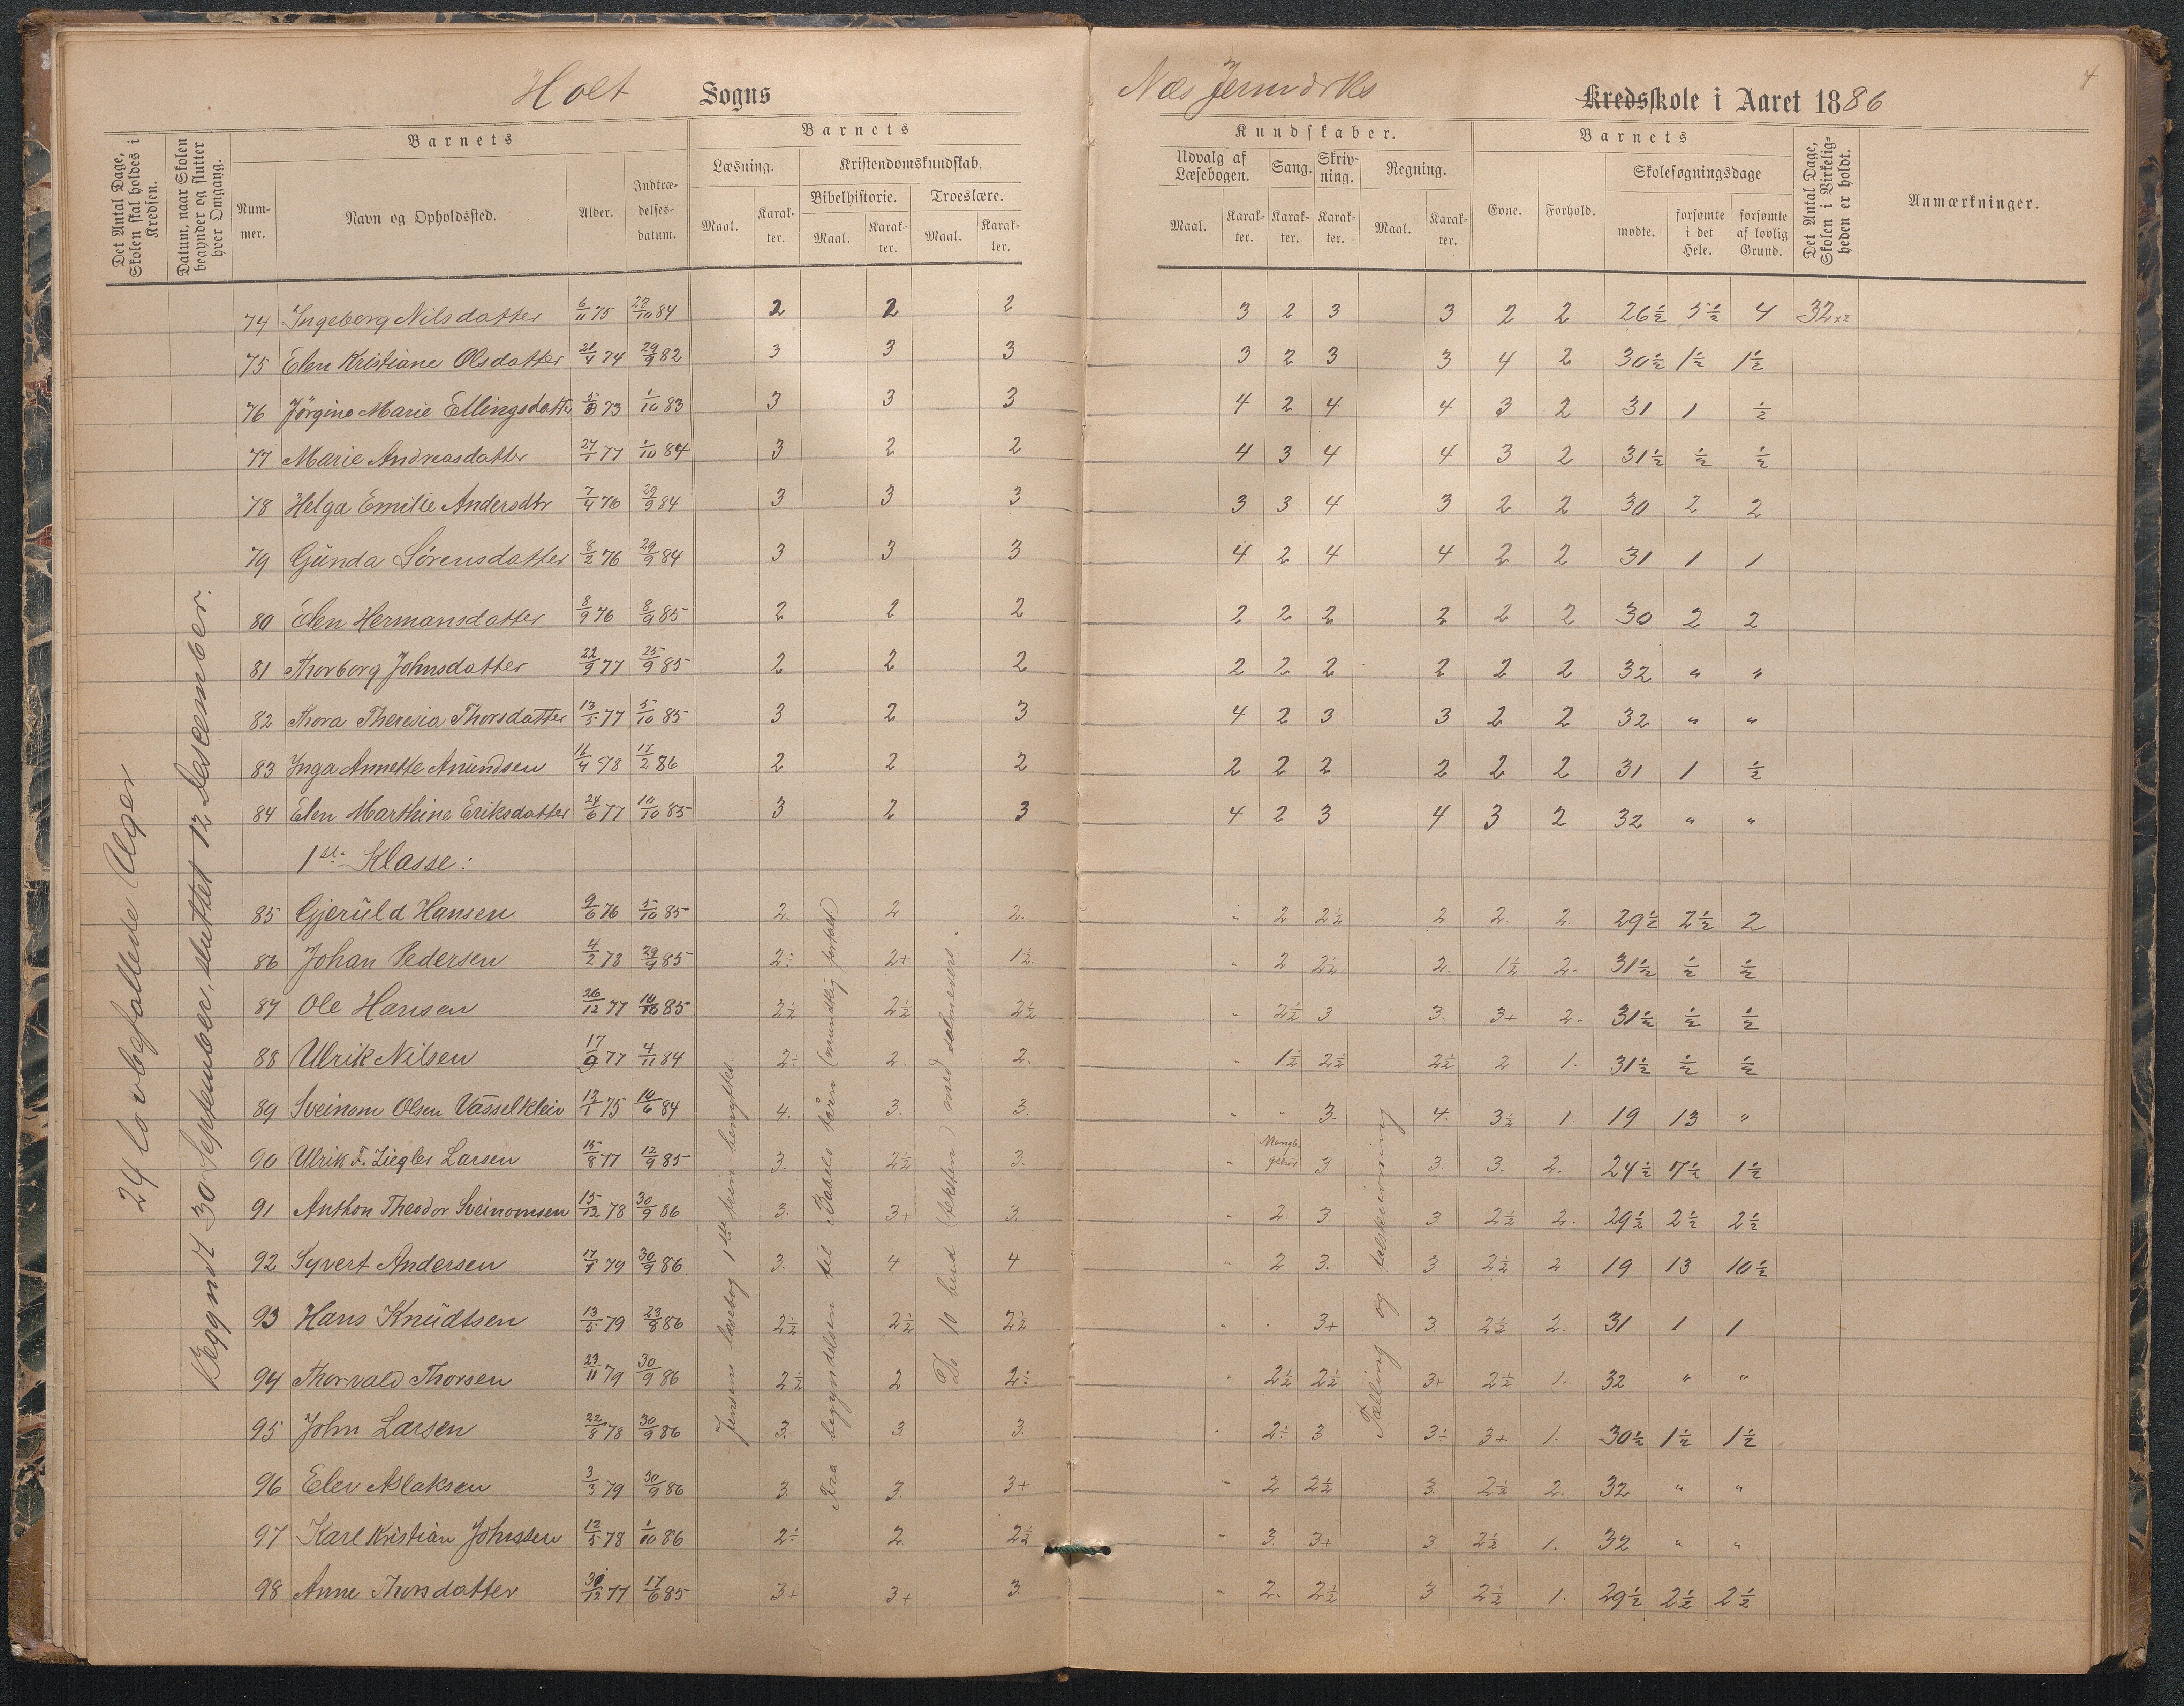 Holt Sogns
Næs Jernværks Kredsskole i Aaret 1886
4
Det Antal Dage, Skolen skal holdes i Kredsen.
Datum, naar Skolen begynder og slutter hver Omgang.
Barnets
Nummer.
Navn og Opholdssted.
Alder.
Indtrædelses-datum.
Barnets
Læsning.
Kristendomskundskab.
Bibelhistorie.
Troeslære.
Maal. Karakter. Maal. Karakter. Maal. Karakter.
Kundskaber.
Udvalg af Læsebogen.
Sang.
Skrivning.
Regning.
Maal. Karakter. Karakter. Karakter. Maal. Karakter.
Barnets
Evne.
Forhold.
Skolesøgningsdage
mødte.
forsømte i det Hele.
forsømte af lovlig Grund.
Det Antal Dage, Skolen i Virkeligheden er holdt.
Anmærkninger.
24 lovbefallede Uger
Begyndt 30 September, sluttet 12 Descember.
74 Ingeborg Nilsdatter 6/11 75 22/10 84 2 2 2 3 2 3 3 2 2 26½ 5½ 4 32
75 Elen Kristiane Olsdatter 21/4 74 29/9 82 3 3 3 3 2 3 3 4 2 30½ 1½ 1½
76 Jörgine Marie Ellingsdatter 73 1/10 83 3 3 3 4 2 4 4 3 2 31 1 ½
77 Marie Andreasdatter 27/1 77 1/10 84 3 2 2 4 3 4 4 3 2 31½ ½ ½
78 Helga Emilie Andersdtr 7/4 76 29/9 84 3 3 3 3 3 4 3 2 2 30 2 2
79 Gŭnda Sörensdatter 8/2 76 29/9 84 3 3 3 4 2 4 4 2 2 31 1 1
80 Elen Hermansdatter 8/9 76 8/9 85 2 2 2 2 2 2 2 2 2 30 2 2
81 Thorborg Johnsdatter 22/9 77 25/9 85 2 2 2 2 2 2 2 2 2 32 " "
82 Thora Theresia Thorsdatter 13/5 77 5/10 85 3 2 3 4 2 3 3 2 2 32 " "
83 Inga Annette Anŭndsen 16/4 78 17/2 86 2 2 2 2 2 2 2 2 2 31 1 ½
84 Elen Marthine Eriksdatter 24/6 77 10/10 85 3 2 3 4 2 3 4 3 2 32 " "
1st. Klasse:
85 Gjerŭld Hansen 9/6 76 5/10 85 2. 2 2. " 2 2½ 2 2. 2. 29½ 2½ 2
86 Johan Pedersen 4/2 78 29/9 85 2÷ 2+ 1½. " 2 2½ 2. 1½ 2. 31½ ½ ½
87 Ole Hansen 26/12 77 10/10 85 2½ 2½ 2½ " 2½ 3. 3. 3+ 2. 31½ ½ ½
88 Ulrik Nilsen 17/9 77 4/11 84 2÷ 2 2. " 1½ 2½ 2½ 2 1. 31½ ½ ½
89 Sveinom Olsen Vasselkleiv 12/1 75 10/6 84 4. 3. 3. " " 3. 4. 3½ 1. 19 13 "
90 Ulrik F. Ziegler Larsen 15/8 77 12/9 85 3. 2½ 3. " Mangler gehör 3. 3. 3. 2. 24½ 7½ 1½
91 Anthon Theodor Sveinomsen 15/12 78 30/9 86 3. 3+ 3. " 2. 3. 3. 2½ 2. 29½ 2½ 2½
92 Syvert Andersen 17/1 79 30/9 86 3. 4. 4 " 2 3. 3 2½ 2. 19 13 10½
93 Hans Knŭdtsen 13/5 79 23/8 86 2½ 2½ 2½ " " 3+ 3 2½ 2. 31 1 1
94 Thorvald Thorsen 23/11 79 30/9 86 2½ 2 2÷ " 2½ 2½ 3+ 2½ 1. 32 " "
95 John Larsen 22/8 78 30/9 86 3. 3 3. " 2÷ 3 3÷ 3+ 1. 30½ 1½ 1½
96 Elev Aslaksen 3/3 79 30/9 86 3. 3. 3+ " 2 2½ 3. 2½ 2. 32 " "
97 Karl Kristian Johnssen 12/5 78 1/10 86 2÷ 2 2½ " 3. 3+ 3. 2½ 1. 32 " "
98 Anne Thorsdatter 30/12 77 17/6 85 3+ 3+ 3. " 2. 2½ 3 2½ 1. 29½ 2½ 2½
Jensens læsebog 1ste trin benyttet.
Fra begyndelsen til Babels tårn (mundtlig fortalt)
De 10 bud (teksten) med
Tælling og talskrivning